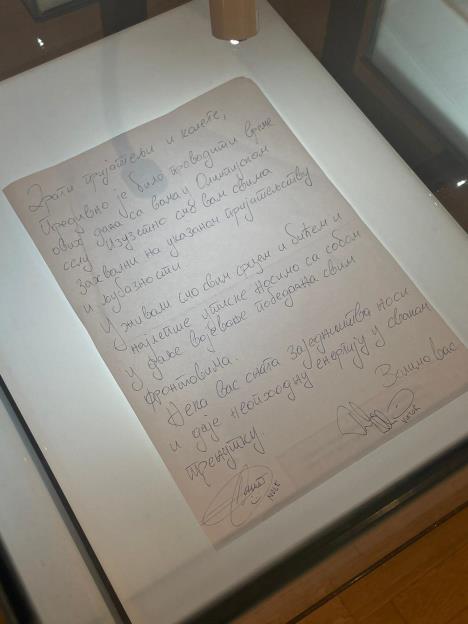 Драги пријатељи и колеге,
Предивно је било проводити време
ових дана са вама у Олимпијском
селу. Изузетно смо вам свима
захвални на указаном пријатељству
и љубазности
Уживали смо свим срцем и бићем и
најлепше утиске носимо са собом
у даље војевање победама свим
фронтовима.
Нека вас снага заједништва носи
и даје неопходну енергију у сваком
тренутку.
Волимо вас
NOLE